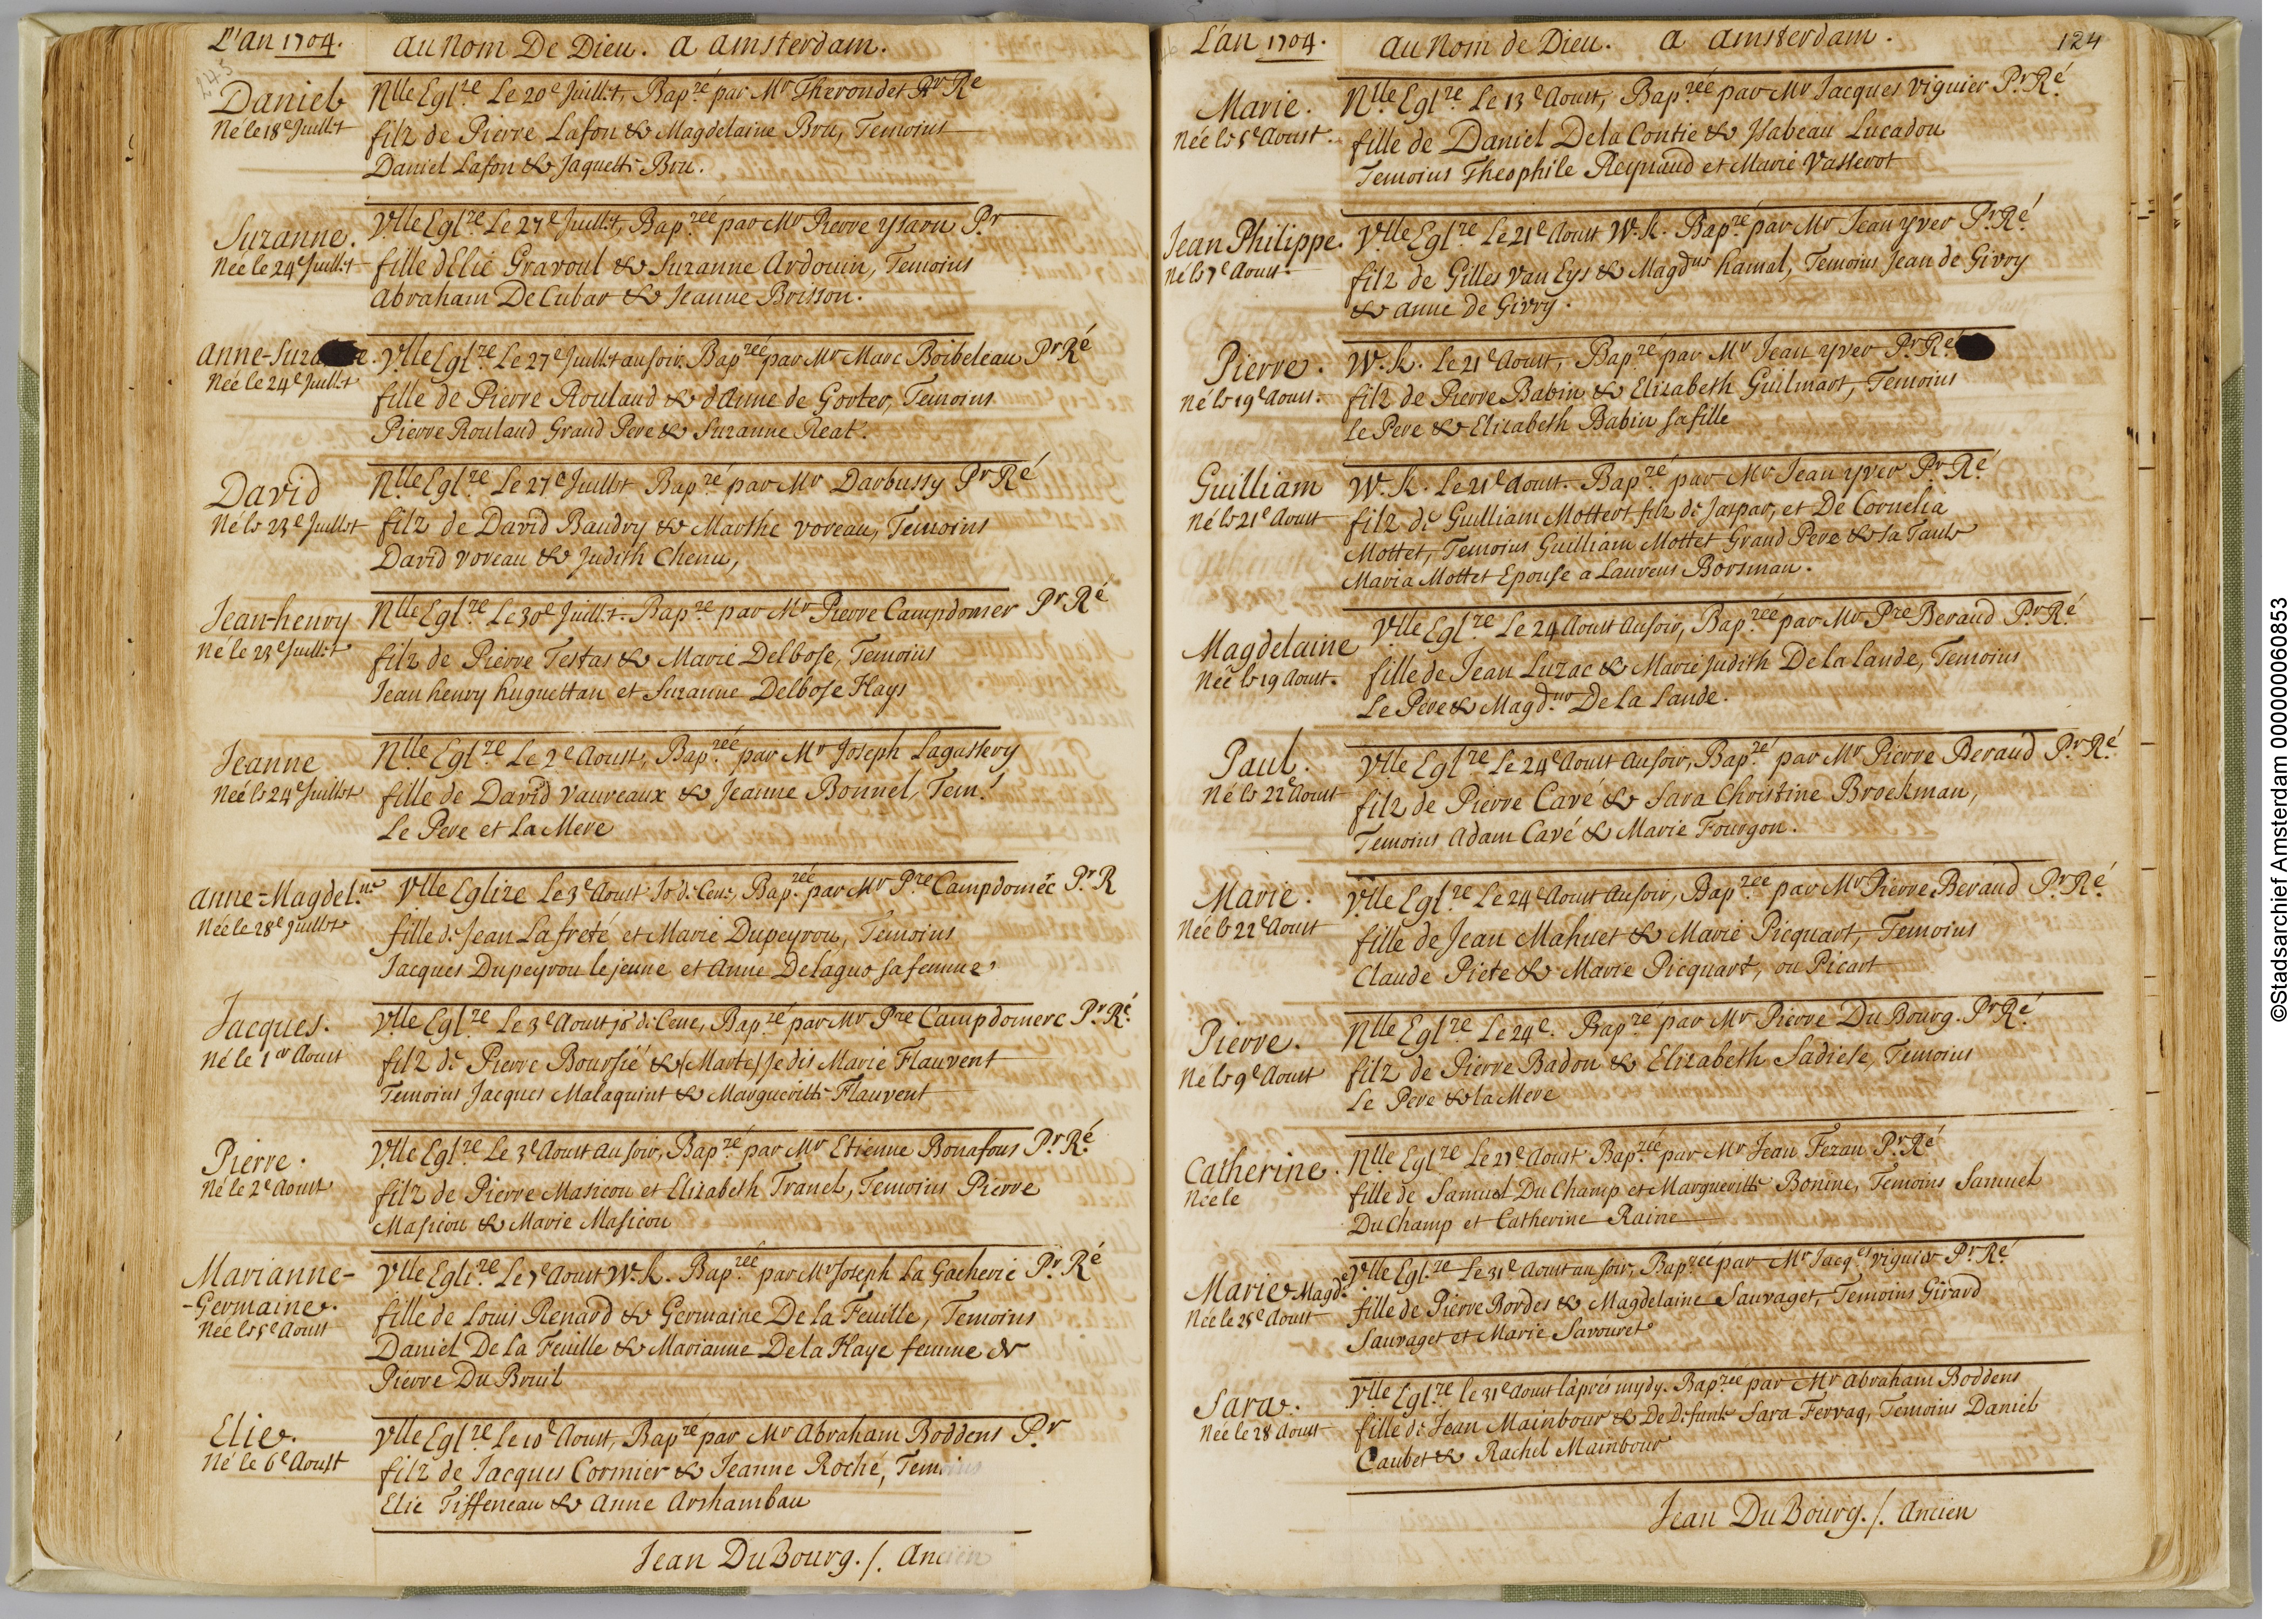 L'an 1704. au nom De Dieu. a amsterdam.
245
Daniel
Né le 18e Juillet
Nlle Eglze Le 20e Juillet, Bapzé par Mr Therondet Pr Ré
filz de Pierre Lafon & Magdelaine Bru, Temoins
Daniel Lafon & Jaquette Bru.
Suzanne.
Neé le 24e Juillet
Vlle Eglze Le 27e Juillet, Bapzeé par Mr Pierre ysarn Pr
fille d'Elie Gravoul & Suzanne Ardouin, Temoins
Abraham De Cubar & Jeanne Brisson.
Anne-Suza e.
Neé le 24e Juillet
Vlle Eglze Le 27e Juillet au soir. Bapzeé par Mr Marc Boibeleau Pr Ré
fille de Pierre Rouland & d'anne de Gorter, Temoins
Pierre Rouland Grand Pere & Suzanne Reat.
David
Né le 23e Juillet
Nlle Eglze Le 27e Juillet Bapzé par Mr Darbussy Pr Ré
filz de David Baudry & Marthe voreau, Temoins
David voreau & Judith Chenu,
Jean-henry
Né le 23e Juillet
Nlle Eglze Le 30e Juillet. Bapzé par Mr Pierre Campdomer Pr Ré
filz de Pierre Testas & Marie Delbose, Temoins
Jean henry huguettan et Suzanne Delbose Hays
Jeanne
Neé le 24e Juillet
Nlle Eglze Le 2e Aoust, Bapzeé par Mr Joseph Lagassery
fille de David Vauveaux & Jeanne Bonnel, Tem.s
Le Pere et La Mere
Anne-Magdel.ne
Neé le 28e Juillet
Vlle Eglize Le 3e Aoust Jo de Cene, Bapzeé par Mr Pre Campdomèc Pr R
fille de Jean Lafreté et Marie Dupeyrou, Temoins
Jacques Dupeyrou le jeune et Anne Delagus sa femme
Jacques.
Né le 1er Aoust
Vlle Eglze Le 3e Aoust jo de Cene, Bapzé par Mr Pre Campdomerc Pr Ré
filz de Pierre Boursié & (Marte) Je dis Marie Flauvent
Temoins Jacques Malaquint & Marguerite Flauvent
Pierre.
Né le 2e Aoust
Vlle Eglze Le 3e Aoust au soir, Bapzé par Mr Etienne Bonafous Pr Ré
filz de Pierre Masicou et Elizabeth Tranel, Temoins Pierre
Masicou & Marie Masicou
Marianne-
-Germaine.
Neé le 5e Aoust
Vlle Eglize Le 7e Aoust W.K. Bapzeé par Mr Joseph La Gacherie Pr Ré
fille de Louis Renard & Germaine De la Feuille, Temoins
Daniel De La Feuille & Marianne De la Haye femme de
Pierre Du Breuil
Elie.
Né le 6e Aoust
Vlle Eglze Le 10e Aoust, Bapzé par Mr Abraham Boddens Pr
filz de Jacques Cormier & Jeanne Roché, Temoins
Elie Tiffeneau & Anne Arshambau
Jean DuBourg. /. Ancien
L'an 1704. au nom de Dieu. a amsterdam. 124
Marie.
Neé le 5e Aoust.
Nlle Eglze Le 13e Aoust, Bapzeé par Mr Jacques Viguier Pr Ré
fille de Daniel De la Contie & Isabeau Lucadou
Temoins Theophile Reynaud et Marie Vasserot
Jean Philippe.
Né le 7e Aoust.
Vlle Eglze Le 21e Aoust W.K. Bapzé par Mr Jean yver Pr Ré
filz de Gilles Van Eys & Magdne hamal, Temoins Jean de Givry
& Anne de Givry.
Pierre.
Né le 19e Aoust.
W.K. Le 21e Aoust, Bapzé par Mr Jean yver Pr Ré
filz de Pierre Babin & Elizabeth Guilmart, Temoins
Le Pere & Elizabeth Babin sa fille
Guilliam
Né le 21e Aoust
W.K. Le 21e Aoust. Bapzé par Mr Jean yver Pr Ré
filz de Guilliam Mottert filz de Jaspar, et De Cornelia
Mottet, Temoins Guilliam Mottet Grand Pere & sa Tante
Maria Mottet Epouse a Laurens Borsman.
Magdelaine
Neé le 19 Aoust.
Vlle Eglze Le 24 Aoust au soir, Bapzeé par Mr Pre Beraud Pr Ré
fille de Jean Luzac & Marie Judith De la Lande, Temoins
Le Pere & Magdne De La Lande.
Paul.
Né le 22e Aoust
Vlle Eglze Le 24e Aoust au soir, Bapzé par Mr Pierre Beraud Pr Ré
filz de Pierre Cavé & Sara Christine Broekman,
Temoins Adam Cavé & Marie Fourgon.
Marie.
Neé le 22e Aoust
Vlle Eglze Le 24e Aoust au soir, Bapzeé par Mr Pierre Beraud Pr Ré
fille de Jean Mahuet & Marie Picquart, Temoins
Claude Piete & Marie Picquart, ou Picart
Pierre.
Né le 9e Aoust
Nlle Eglze Le 24e. Bapzé par Mr Pierre Du Bourg. Pr Ré
filz de Pierre Badou & Elizabeth Sadiele, Temoins
Le Pere & la Mere
Catherine.
Neé le
Nlle Eglze Le 27e Aoust Bapzeé par Mr Jean Fezan Pr Ré
fille de Samuel Du Champ et Marguerite Bonine, Temoins Samuel
Du Champ et Catherine Raine
Marie Magde.
Neé le 25e Aoust
Vlle Eglze Le 31e Aoust au soir, Bapzeé par Mr Jacqes Viguier Pr Ré
fille de Pierre Bordes & Magdelaine Sauvaget, Temoins Girard
Sauvaget et Marie Savouret
Sara.
Neé le 28 Aoust
Vlle Eglze le 31e Aoust l'aprés mydy. Bapzeé par Mr Abraham Boddens
fille de Jean Mainbour & De Defunte Sara Fervaq, Temoins Daniel
Caubet & Rachel Mainbour
Jean DuBourg. /. Ancien
©Stadsarchief Amsterdam 000000060853